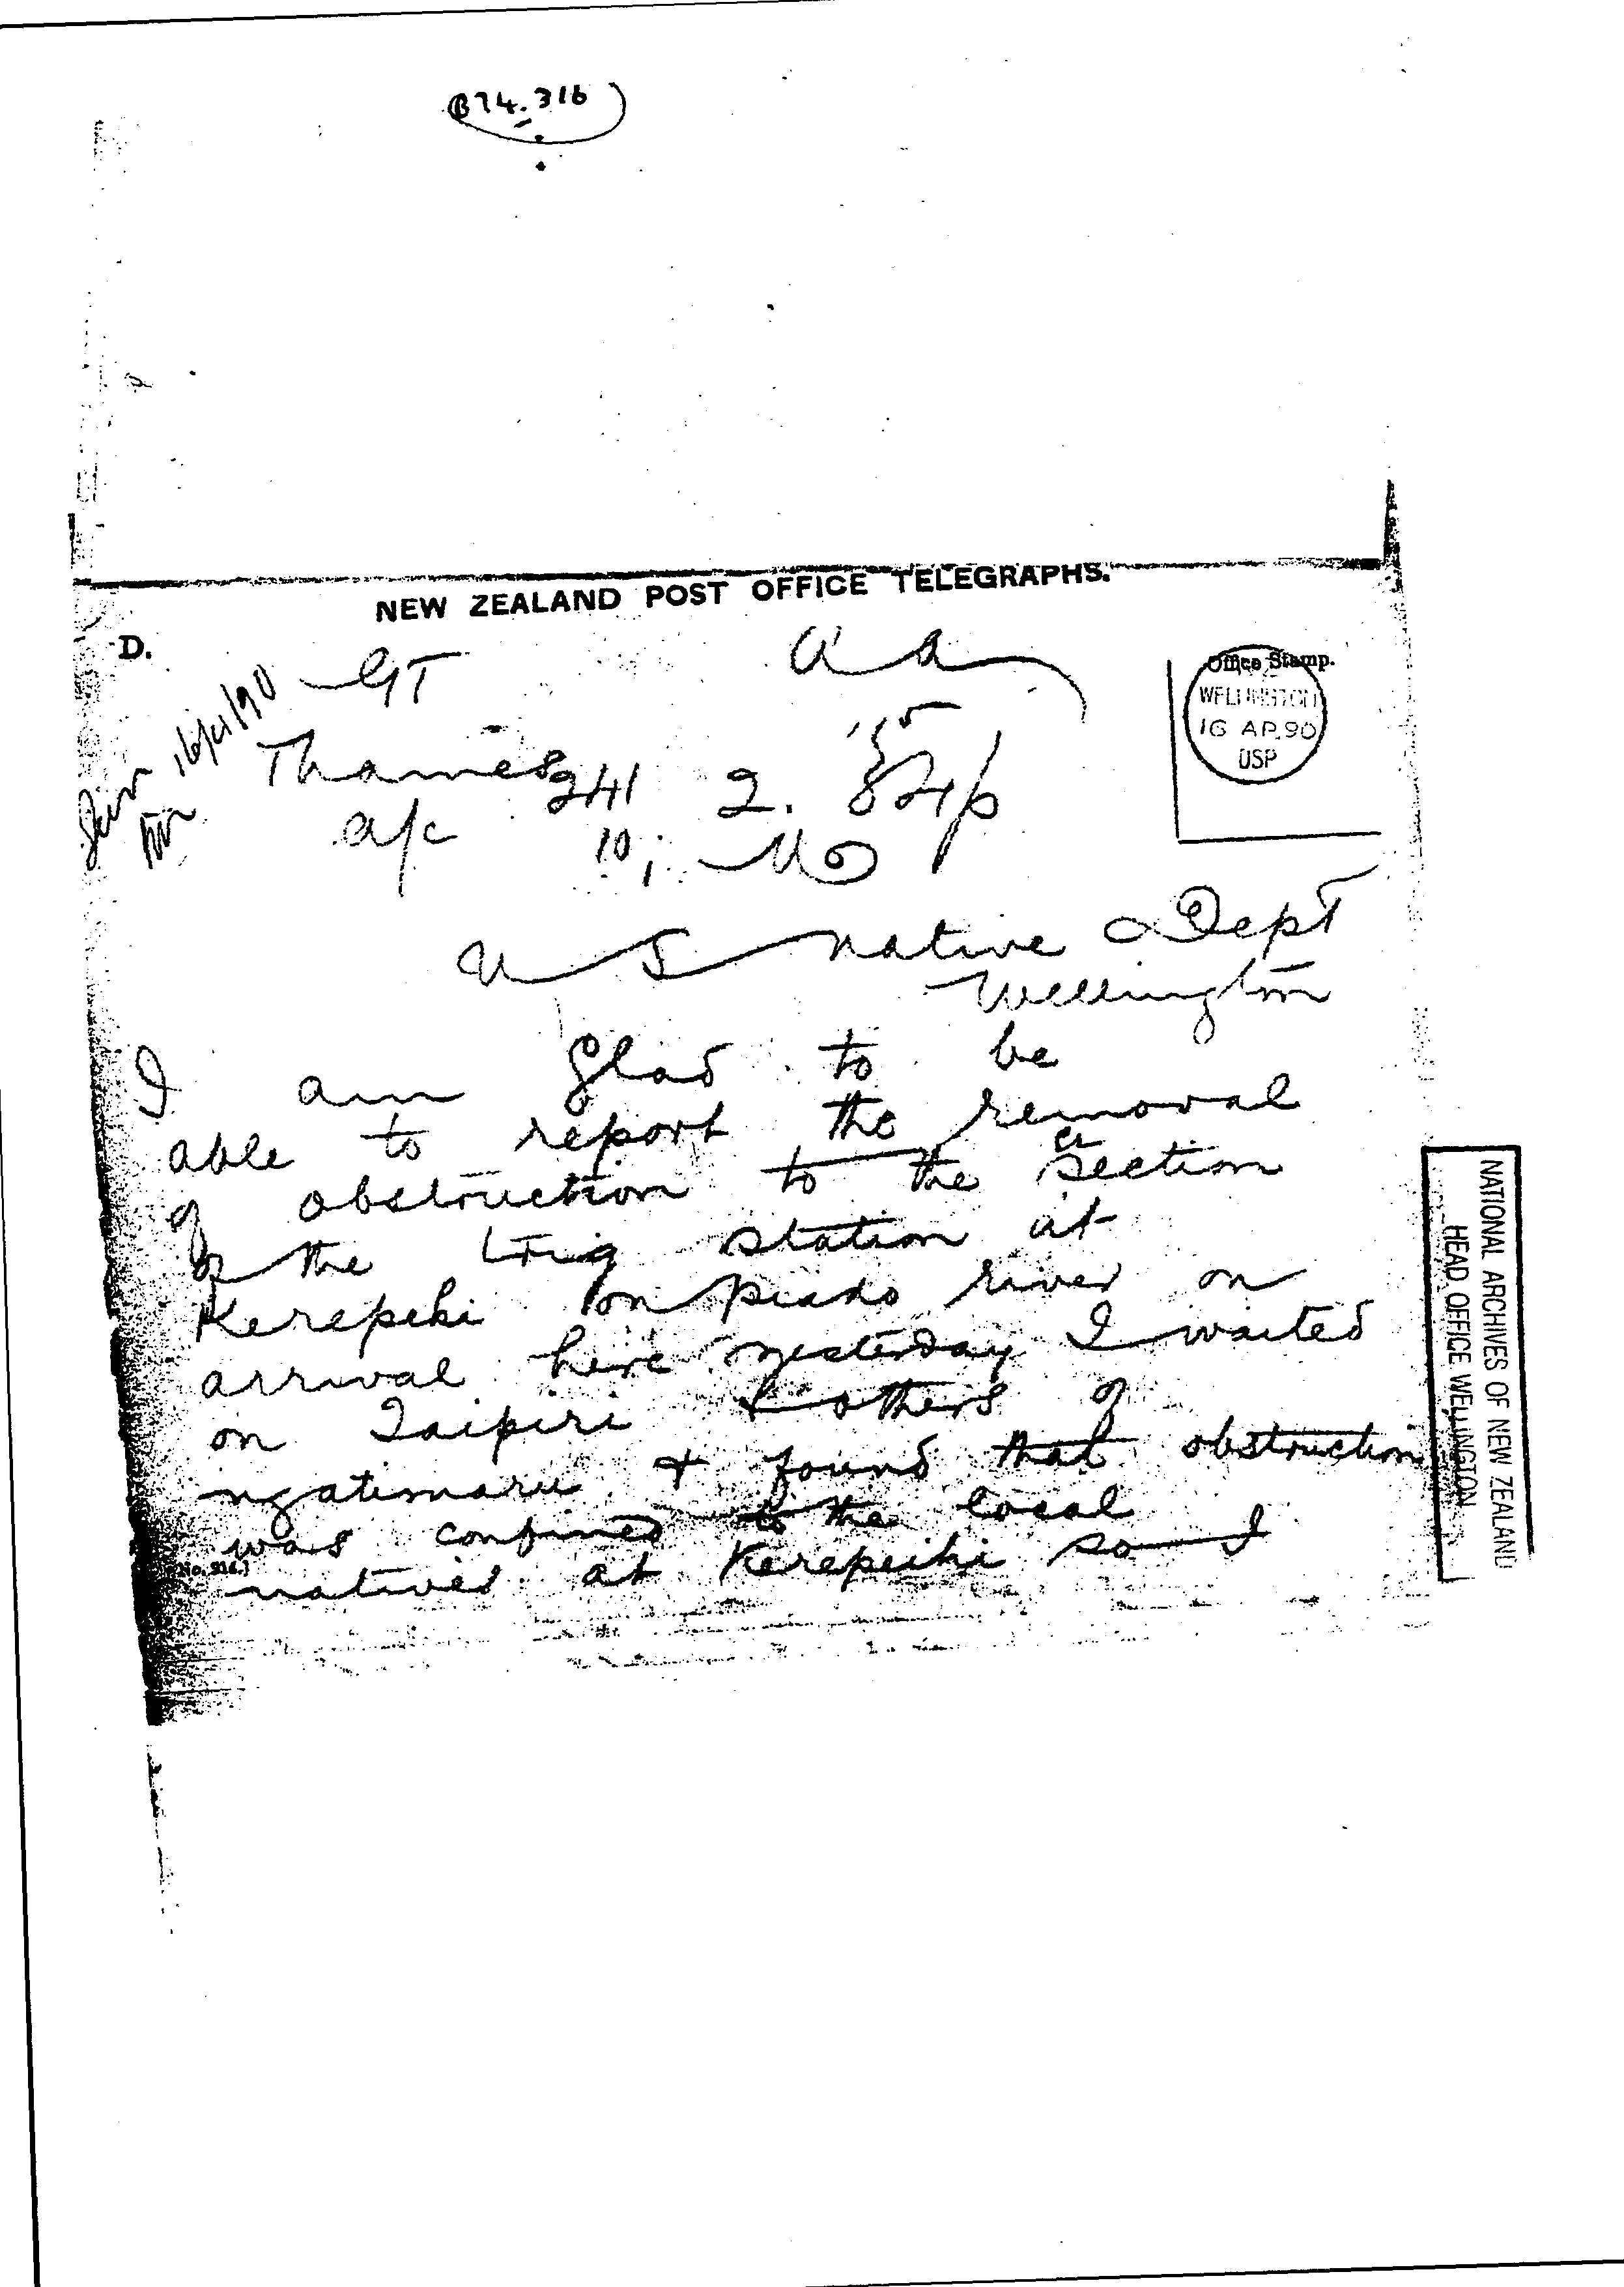 B74.316
NEW ZEALAND POST OFFICE TELEGRAPHS.
D.
GT
Office Stamp.
WELLINGTON
16 AP.90
16/4/90
Thames 241 2.
a/c 10,
U S native Dept
Wellington
I am glad to be
able to report the removal
of obstruction to the section
the trig station at
Kerepehi on piako river on
arrival here yesterday I waited
on Taipiri & others of
ngatimaru & found that obstruction
was confined to the local
natives at Kerepeihi so I
(No. 316.)
NATIONAL ARCHIVES OF NEW ZEALAND
HEAD OFFICE WELLINGTON